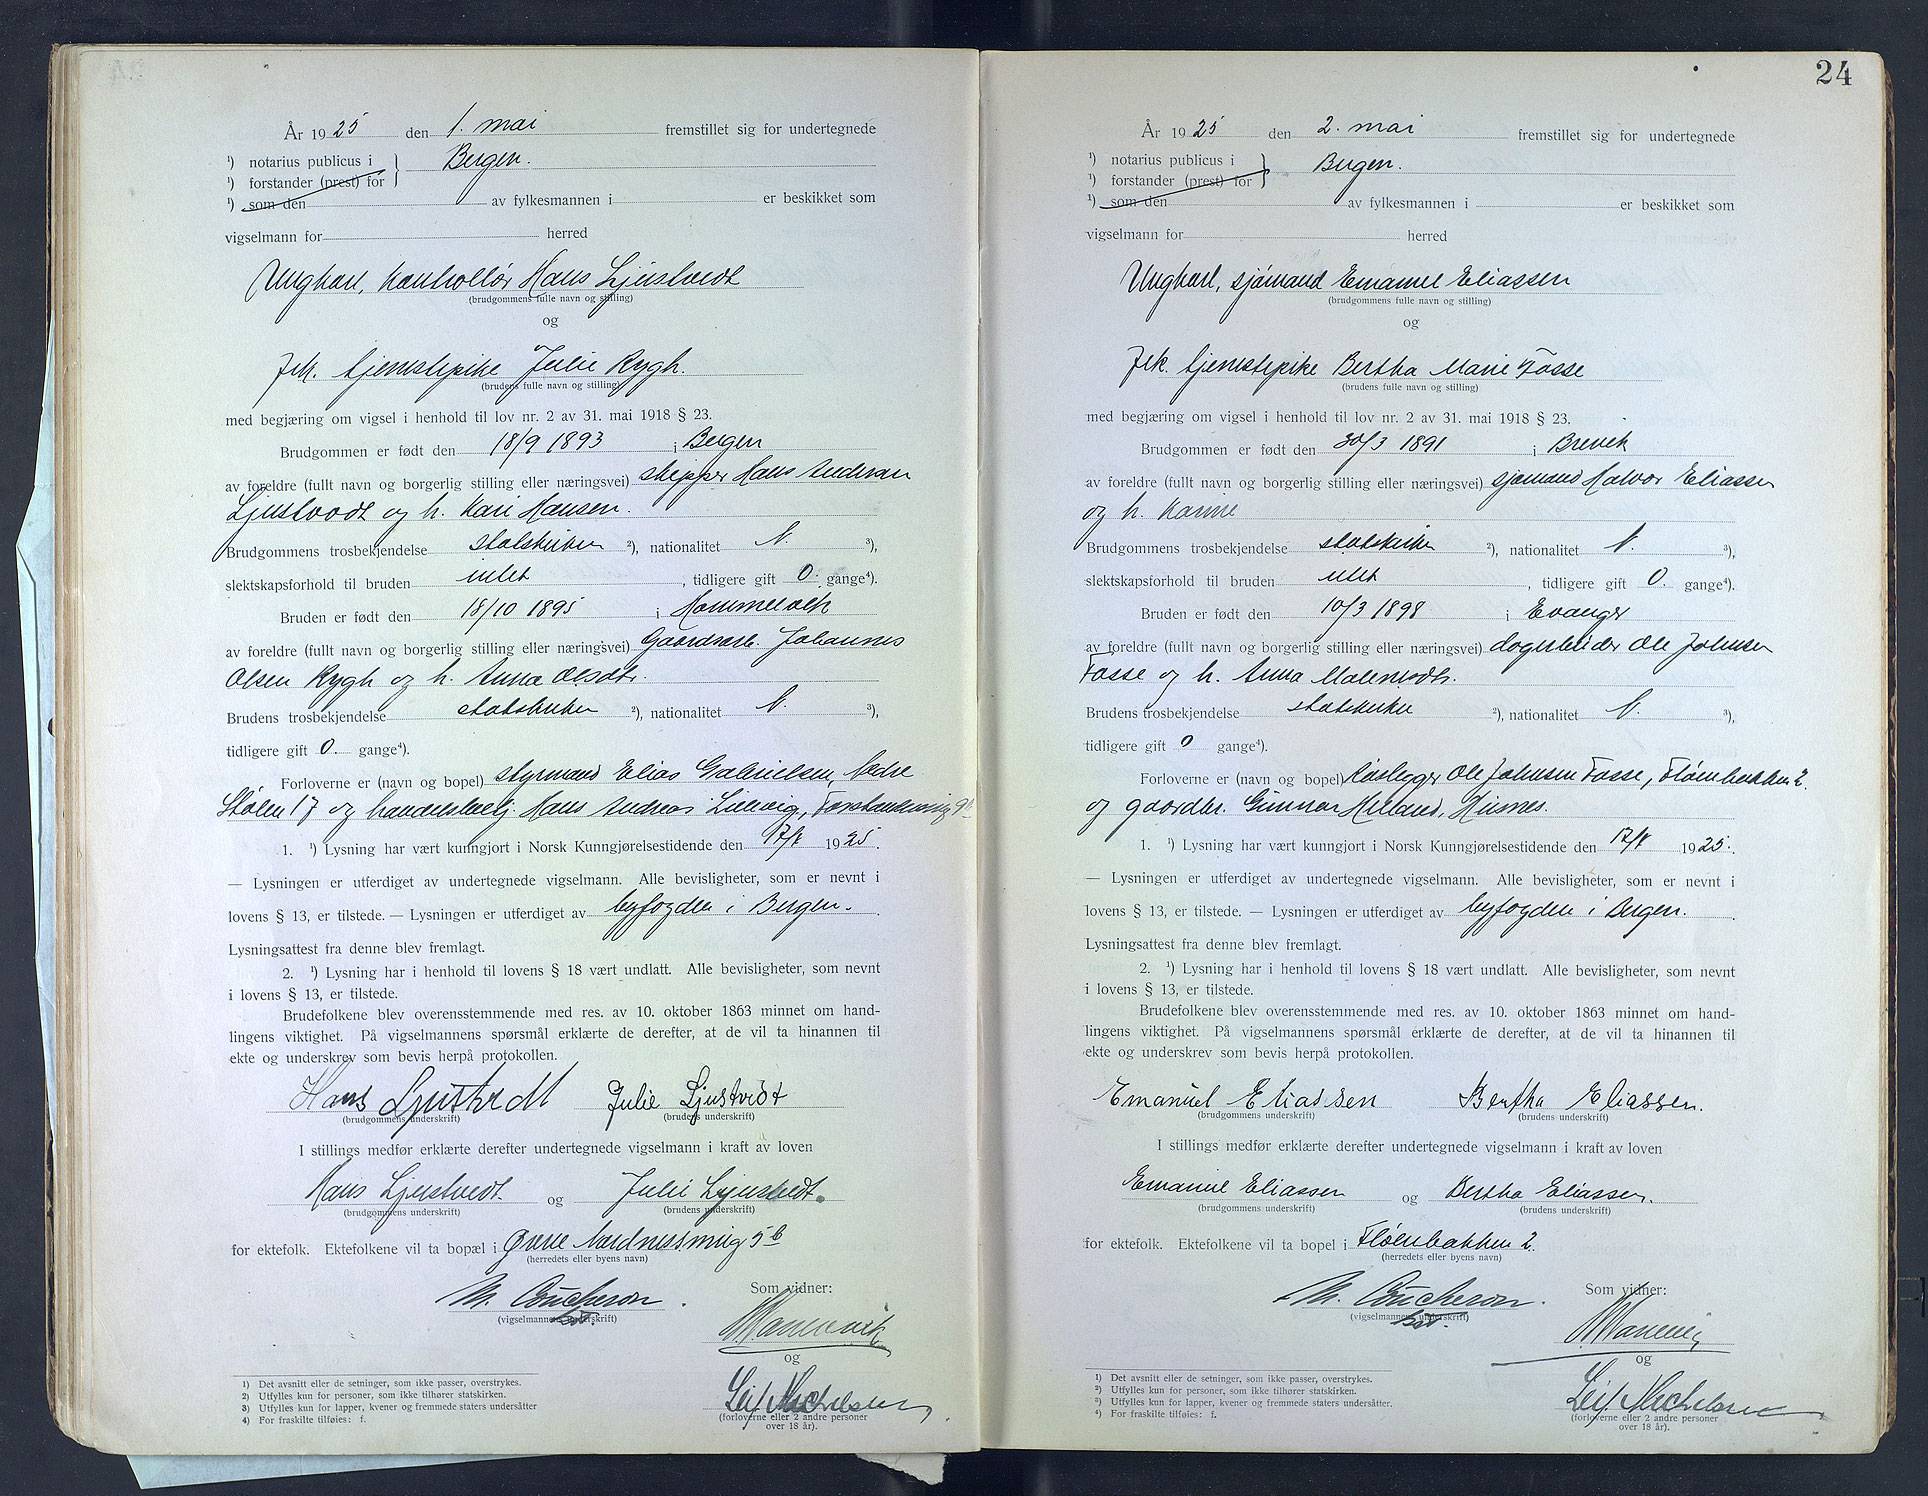 År 1925 den 1. mai fremstillet sig for undertegnede
¹) notarius publicus i } Bergen.
¹) forstander (prest) for
¹) som den av fylkesmannen i er beskikket som
vigselmann for herred
Ungkarl, kontrollør Hans Ljustvedt
(brudgommens fulle navn og stilling)
og
Frk. tjenestepike Julie Rygh.
(brudens fulle navn og stilling)
med begjæring om vigsel i henhold til lov nr. 2 av 31. mai 1918 § 23.
Brudgommen er født den 18/9 1893 i Bergen
av foreldre (fullt navn og borgerlig stilling eller næringsvei) skipper Hans Andersen
Ljustvedt og h. Kari Hansen.
Brudgommens trosbekjendelse statskirken ²), nationalitet N. ³),
slektskapsforhold til bruden intet , tidligere gift 0. gange⁴).
Bruden er født den 18/10 1895 i Hommelvik
av foreldre (fullt navn og borgerlig stilling eller næringsvei) Gaardsarb. Johannes
Olsen Rygh og h. Anna Olsdtr.
Brudens trosbekjendelse statskirken ²), nationalitet N. ³),
tidligere gift 0. gange⁴).
Forloverne er (navn og bopel) styrmand Elias Gabrielsen, Nedre
Stølen 17 og handelsbetj. Hans Andreas
1. ¹) Lysning har vært kunngjort i Norsk Kunngjørelsestidende den 17/4 1925.
— Lysningen er utferdiget av undertegnede vigselmann. Alle bevisligheter, som er nevnt i
lovens § 13, er tilstede. — Lysningen er utferdiget av byfogden i Bergen.
Lysningsattest fra denne blev fremlagt.
2. ¹) Lysning har i henhold til lovens § 18 vært undlatt. Alle bevisligheter, som nevnt
i lovens § 13, er tilstede.
Brudefolkene blev overensstemmende med res. av 10. oktober 1863 minnet om hand-
lingens viktighet. På vigselmannens spørsmål erklærte de derefter, at de vil ta hinannen til
ekte og underskrev som bevis herpå protokollen.
Hans Ljustvedt Julie Ljustvedt
(brudgommens underskrift) (brudens underskrift)
I stillings medfør erklærte derefter undertegnede vigselmann i kraft av loven
Hans Ljustvedt og Julie Ljustvedt.
(brudgommens underskrift) (brudens underskrift)
for ektefolk. Ektefolkene vil ta bopæl i Øvre Nordnesvei 5b
(herredets eller byens navn)
M. Coucheron
(vigselmannens underskrift)
Som vidner:
og
Leif Michelsen
(forloverne eller 2 andre personer
over 18 år).
1) Det avsnitt eller de setninger, som ikke passer, overstrykes.
2) Utfylles kun for personer, som ikke tilhører statskirken.
3) Utfylles kun for lapper, kvener og fremmede staters undersåtter
4) For fraskilte tilføies: f.
24
År 1925 den 2. mai fremstillet sig for undertegnede
¹) notarius publicus i } Bergen.
¹) forstander (prest) for
¹) som den av fylkesmannen i er beskikket som
vigselmann for herred
Ungkarl, sjømand Emanuel Eliassen
(brudgommens fulle navn og stilling)
og
Frk. tjenestepike Bertha Marie Fosse
(brudens fulle navn og stilling)
med begjæring om vigsel i henhold til lov nr. 2 av 31. mai 1918 § 23.
Brudgommen er født den 30/3 1891 i Brevik
av foreldre (fullt navn og borgerlig stilling eller næringsvei) sjømand Halvor Eliassen
og h. Karine
Brudgommens trosbekjendelse statskirken ²), nationalitet N. ³),
slektskapsforhold til bruden intet , tidligere gift 0. gange⁴).
Bruden er født den 10/3 1898 i Evanger
av foreldre (fullt navn og borgerlig stilling eller næringsvei) dagarbeider Ole Johnsen
Fosse og h. Anna
Brudens trosbekjendelse statskirken ²), nationalitet N. ³),
tidligere gift 0 gange⁴).
Forloverne er (navn og bopel) Ole Johnsen Fosse, Fløenbakken 2.
og gaardbr. Gunnar
1. ¹) Lysning har vært kunngjort i Norsk Kunngjørelsestidende den 17/4 1925.
— Lysningen er utferdiget av undertegnede vigselmann. Alle bevisligheter, som er nevnt i
lovens § 13, er tilstede. — Lysningen er utferdiget av byfogden i Bergen.
Lysningsattest fra denne blev fremlagt.
2. ¹) Lysning har i henhold til lovens § 18 vært undlatt. Alle bevisligheter, som nevnt
i lovens § 13, er tilstede.
Brudefolkene blev overensstemmende med res. av 10. oktober 1863 minnet om hand-
lingens viktighet. På vigselmannens spørsmål erklærte de derefter, at de vil ta hinannen til
ekte og underskrev som bevis herpå protokollen.
Emanuel Eliassen Bertha Eliassen.
(brudgommens underskrift) (brudens underskrift)
I stillings medfør erklærte derefter undertegnede vigselmann i kraft av loven
Emanuel Eliassen og Bertha Eliassen.
(brudgommens underskrift) (brudens underskrift)
for ektefolk. Ektefolkene vil ta bopel i Fløenbakken 2.
(herredets eller byens navn)
M. Coucheron.
(vigselmannens underskrift)
Som vidner:
og
Leif Michelsen
(forloverne eller 2 andre personer
over 18 år).
1) Det avsnitt eller de setninger, som ikke passer, overstrykes.
2) Utfylles kun for personer, som ikke tilhører statskirken.
3) Utfylles kun for lapper, kvener og fremmede staters undersåtter.
4) For fraskilte tilføies: f.